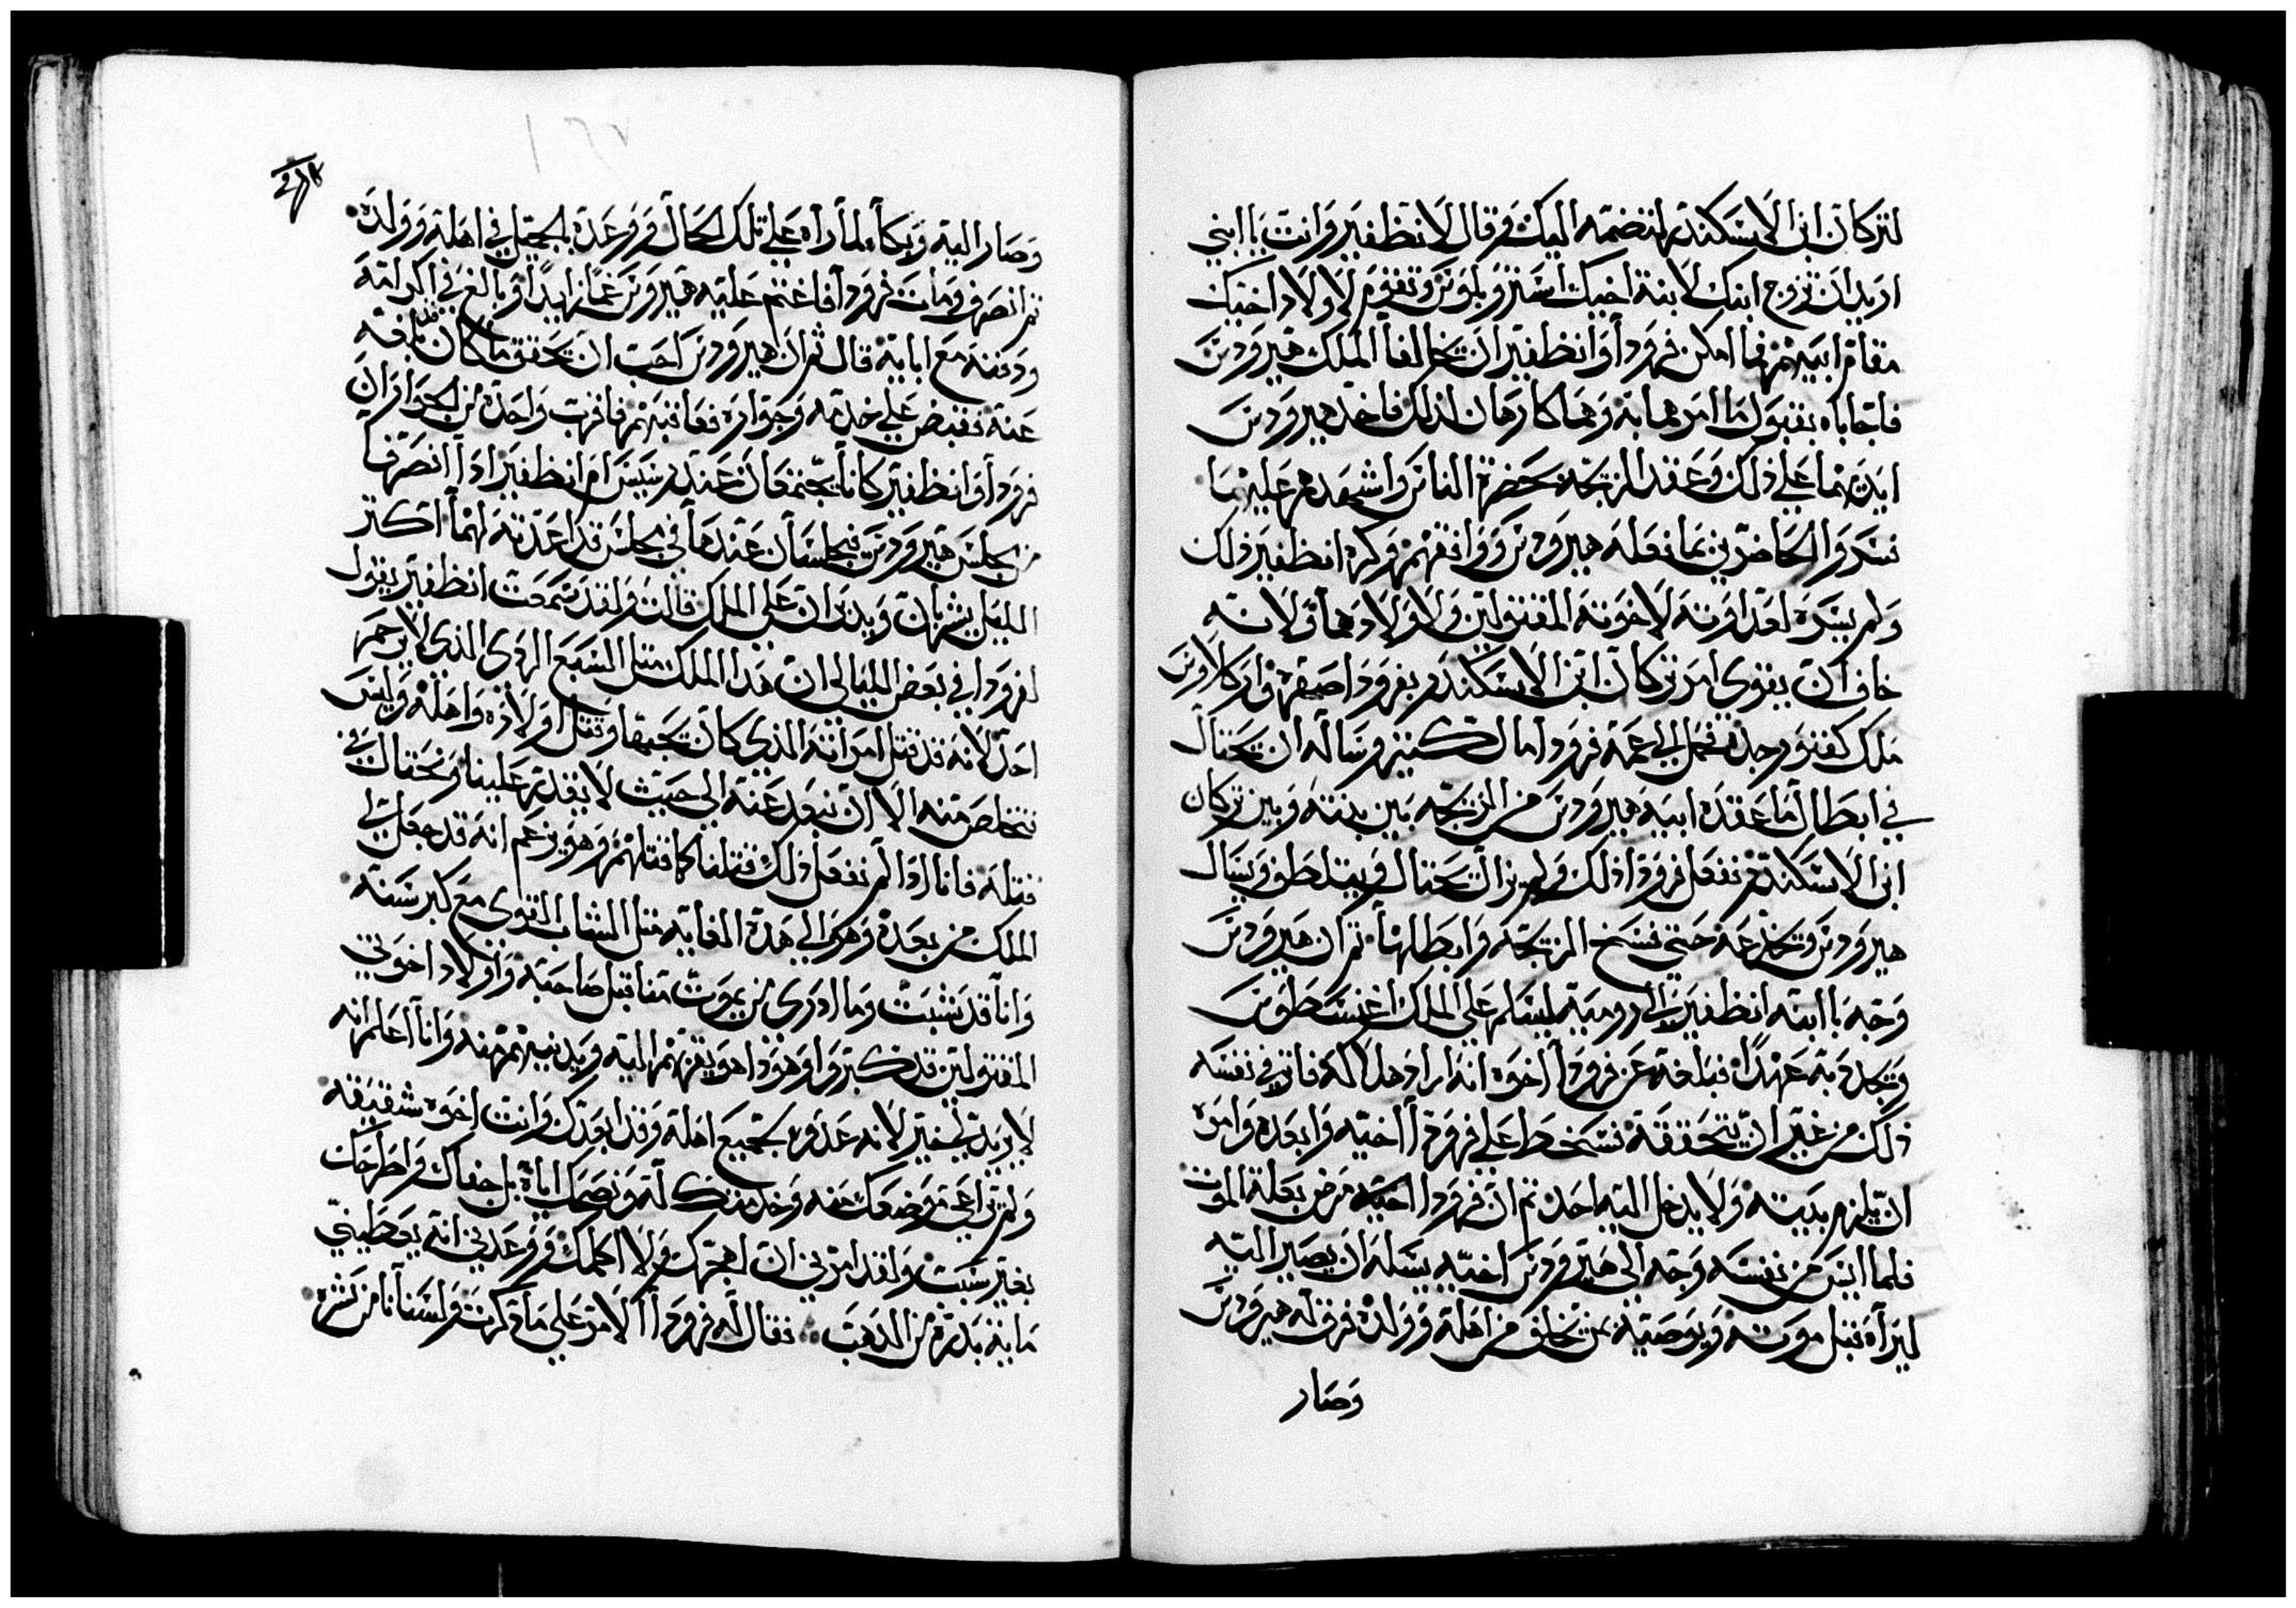 لتركان ابن الاسكندر لتضمه اليك وقال لانظفير وانت يا ابني
اريد ان تزوج ابنك لابنة اخيك استروبلوس وتقوم لاولاد اخيك
مقام ابيهم فما امكن فرودا وانظفير ان يخالفا الملك هيرودس
فاجاباه بقبول ما امرهما به وهما كارهان لذلك فاخذ هيرودس
ايديهما على ذلك وعقد المزيجة بحضرة الناس واشهدهم عليهما
فسروا الحاضرين بما فعله هيرودس ووافقهم وكره انظفير ذلك
ولم يسره لعداوته لاخوته المقتولين ولاولادهما ولانه
خاف ان يقوى امر تركان ابن الاسكندر بفرودا صهره واركلاوس
ملك كفتور جده فحمل الى عمه فرودا مال كثير وساله ان يحتال
في ابطال ما عقده ابيه هيرودس من المزيجة بين بنته وبين تركان
ابن الاسكندر ففعل فرودا ذلك ولم يزال يحتال ويتلطف ويسال
هيرودس ويخدعه حتى فسخ المزيجة وابطلها ثم ان هيرودس
وجه باابنه انظفير الى رومية ليسلم على الملك اغسطوس
ويجدد به عهدا فبلغه عن فرودا اخوه انه اراد هلاكه فاثر في نفسه
ذلك من غير ان يتحققه فسخط على فرودا اخيه وابعده وامره
ان يلزم بيته ولا يدخل اليه احد ثم ان فرودا اخيه مرض بعلة الموت
فلما ايس من نفسه وجه الى هيرودس اخيه يسله ان يصير اليه
ليراه قبل موته ويوصيه بمن يخلف من اهله وولده فرق له هيرودس
وصار
وصار اليه وبكا لما راه على تلك الحال ووعده بالجميل في اهله وولده
ثم انصرف ومات فرودا فاغتم عليه هيرودس غما زايدا وبالغ في اكرامه
ودفنه مع ابايه قال ثم ان هيرودس احب ان يحقق ما كان قد بلغه
عنه فقبض على خدمه وجواره فعاقبهم فاقرت واحدة من الجوار ان
فرودا وانظفير كانا يجتمعان عند رسيس ام انظفير اذا انصرفا
من مجلس هيرودس فيجلسان عندها في مجلس قد اعدته لهما اكثر
الليل يشربان ويدبران على الملك قالت ولقد سمعت انظفير يقول
لفرودا في بعض الليالي ان هذا الملك مثل السبع الردى الذي لا يرحم
احد لانه قد قتل امراته الذي كان يحبها وقتل اولاده واهله وليس
نتخلص منه الا ان نبعد عنه الى حيث لا يقدر علينا ونحتال في
قتله فانا اذا لم نفعل ذلك قتلنا كما قتلهم وهو يزعم انه قد جعل لي
الملك من بعده وهو الى هذه الغاية مثل الشاب القوى مع كبر سنه
وانا قد شبت وما ادرى من يموت منا قبل صاحبه واولاد اخوتي
المقتولين قد كبروا وهوذا هو يقربهم اليه ويدنيهم منه وانا اعلم انه
لا يريد لي خير لانه عدو لجميع اهله وقد ابعدك وانت اخوه شقيقه
ولم يراعي موضعك منه وخدمتك له ونصحك اياه بل جفاك واطرحك
بغير سبب ولقد امرني ان اهجرك ولا اكلمك ووعدني انه يعطيني
ماية بدرة من الذهب فقال له فرودا الامر على ما ذكرت ولسنا نامن شره